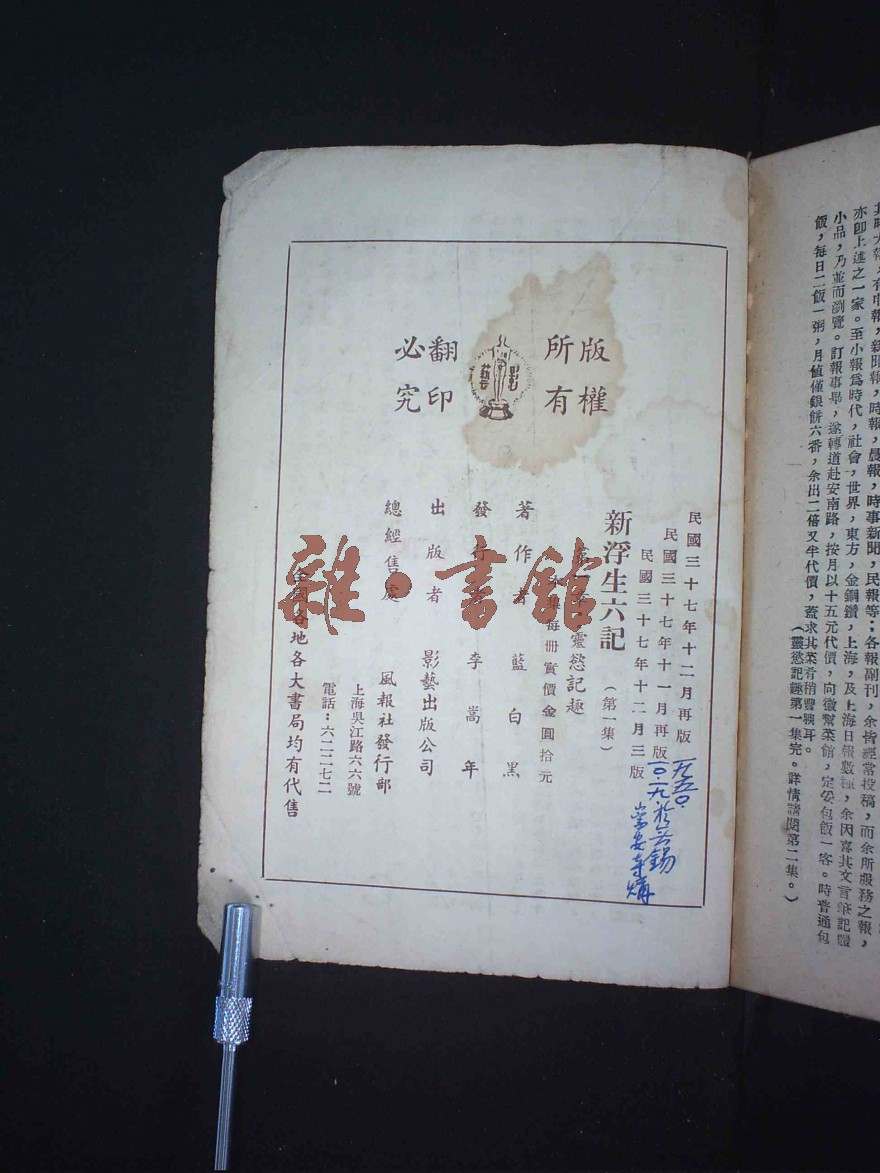 其時大報，有申報，新聞報，時報，晨報，時事新聞，民報等；各報副刊，余皆經常投稿，而余所服務之報，
亦即上述之一家。至小報爲時代，社會，世界，東方，金鋼鑽，上海，及上海日報數種，余因喜其文言筆記體
小品，乃並而瀏覽。訂報事畢，遂轉道赴安南路，按月以十五元代價，向徽幫菜館，定妥包飯一客。時普通包
飯，每日二飯一粥，月值僅銀餅六番，余出二倍又半代價，蓋求其菜肴稍豐腆耳。
（靈慾記趣第一集完。詳情請閱第二集。）
版權
所有
翻印
必究
影藝
民國三十七年十二月再版
民國三十七年十一月再版
民國三十七年十二月三版
一九五〇.
一〇.一九於无錫
崇安寺購
新浮生六記（第一集）
靈慾記趣
每冊實價金圓拾元
著作者　藍白黑
發行　李嵩年
出版者　影藝出版公司
總經售處　風報社發行部
上海吳江路六六號
電話：六二二七二
全國各地各大書局均有代售
雜·書館